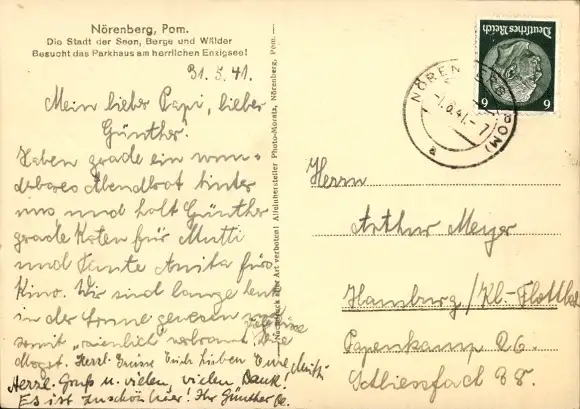 Nörenberg, Pom.
Die Stadt der Seen, Berge und Wälder
Besucht das Parkhaus am herrlichen Enzigsee!
31.5.41.
Mein lieber Papi, lieber
Günther!
Haben grade ein wun-
derbares Abendbrot hinter
uns und holt Günther
grade Karten für Mutti
und Tante Anita fürs
Kino. Wir sind lange heut
in der Sonne gewesen und
somit "ziemlich" verbrannt.
Herzl. Grüsse Euch lieben Eure
Herzl. Gruß u. vielen, vielen Dank!
Es ist zu schön hier! Ihr Günther
Nachdruck aller Art verboten! Alleinhersteller Photo-Moratz, Nörenberg, Pom.
Deutsches Reich
6 6
NÖRENBERG (POM)
-1.6.41.-7
a
Herrn
Arthur Meyer
Hamburg/Kl.-Flottbek
Papenkamp 26.
Schliessfach 38.